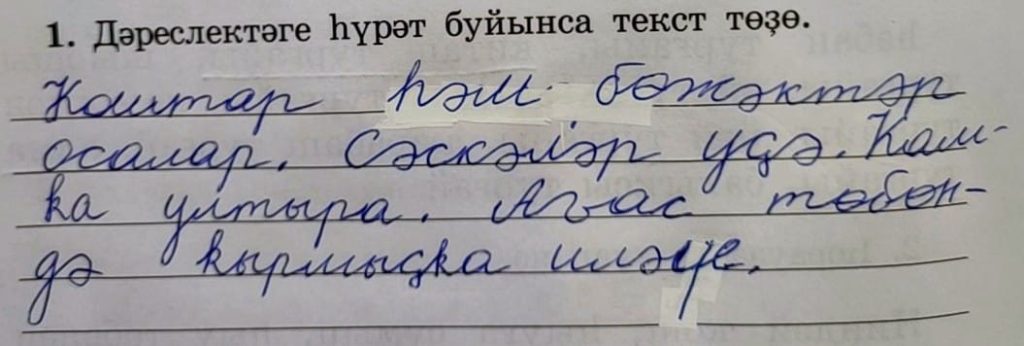 1. Дәреслектәге һүрәт буйынса текст төҙө.
Коштар һәм бөжәктәр
осалар. Сәскәләр үҫә. Кам-
ка ултыра. Ағас төбөн-
дә ҡырмыҫҡа иләүе.